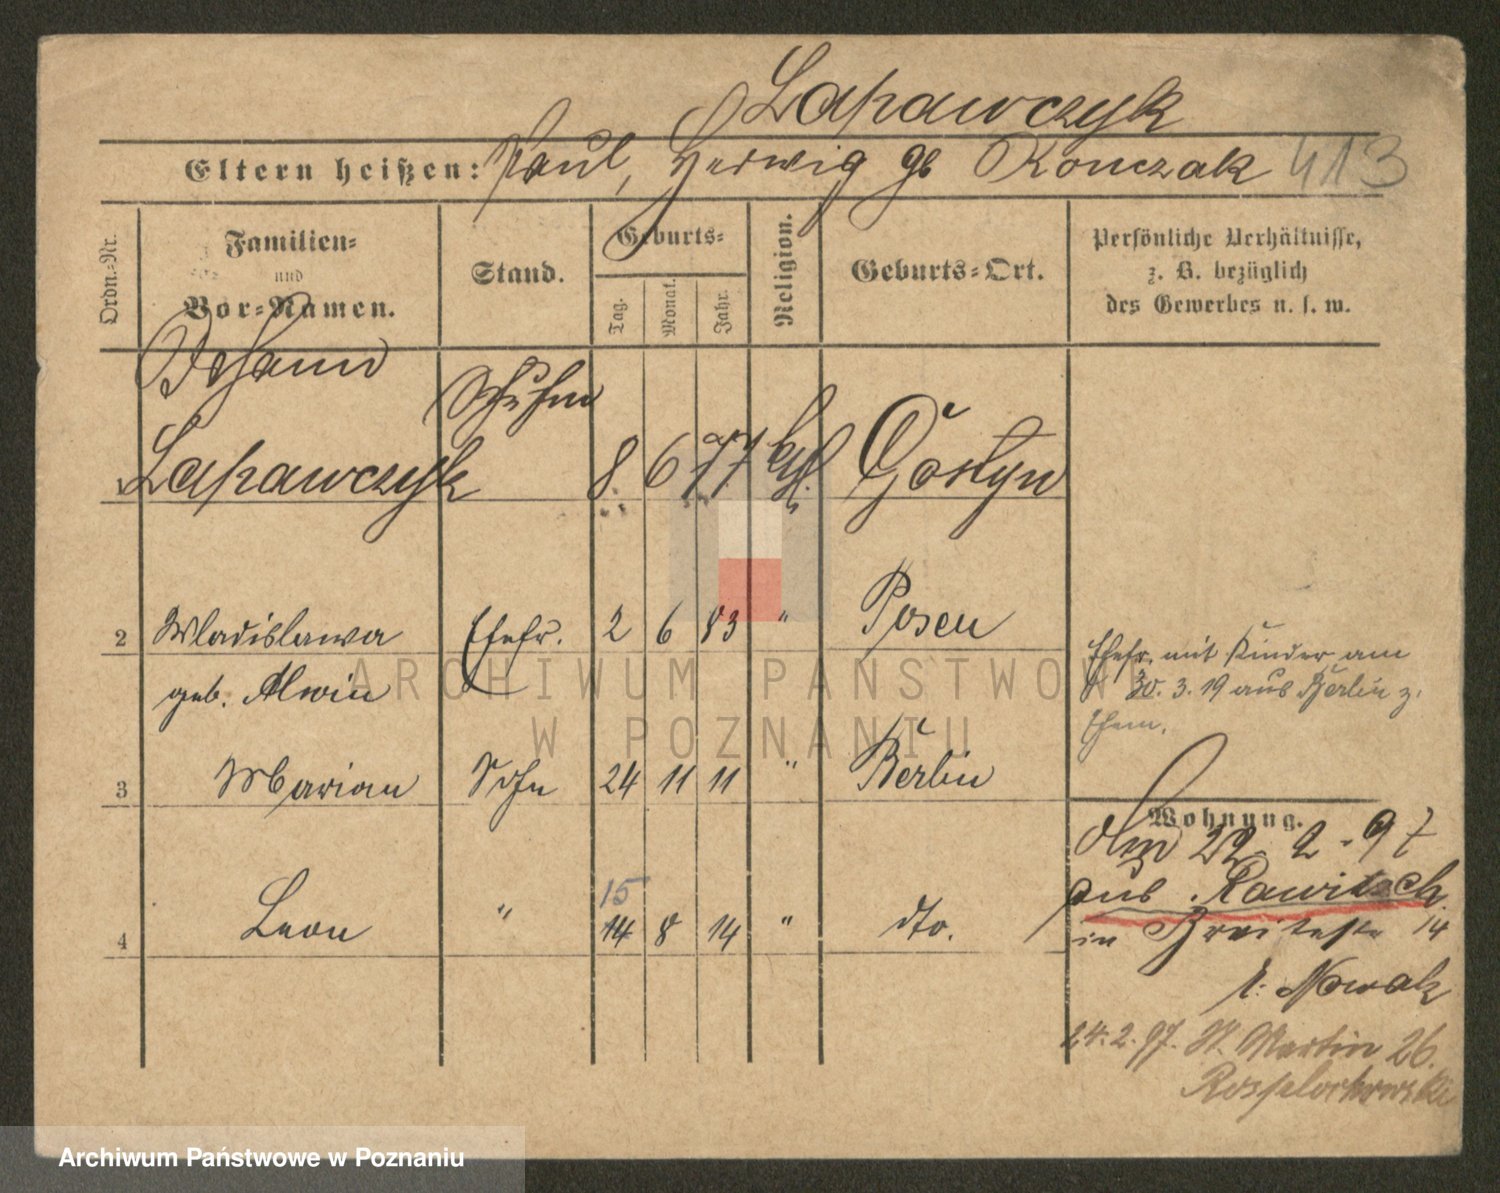 Lapawczyk
Eltern heißen: Paul, Hedwig gb Konczak 413
Ordn.-Nr.
Familien-
und
Vor-Namen.
Stand.
Geburts-
Tag.
Monat.
Jahr.
Religion.
Geburts-Ort.
Persönliche Verhältnisse,
z. B. bezüglich
des Gewerbes u. s. w.
Johann
Schuhm
Lapawczyk 8. 6 77 kath. Gostyn
2 Wladislawa Ehefr. 2 6 83 " Posen
geb. Alwin
Ehefr. mit Kinder am
30. 3. 19 aus Berlin z.
Ehem.
3 Marian Sohn 24 11 11 " Berlin
Wohnung.
Am 22. 2. 97
aus Rawitsch
in Breitestr 14
b. Nowak
15
4 Leon " 14 8 14 " dto.
24. 2. 97. St. Martin 26.
ARCHIWUM PAŃSTWOWE
W POZNANIU
Archiwum Państwowe w Poznaniu